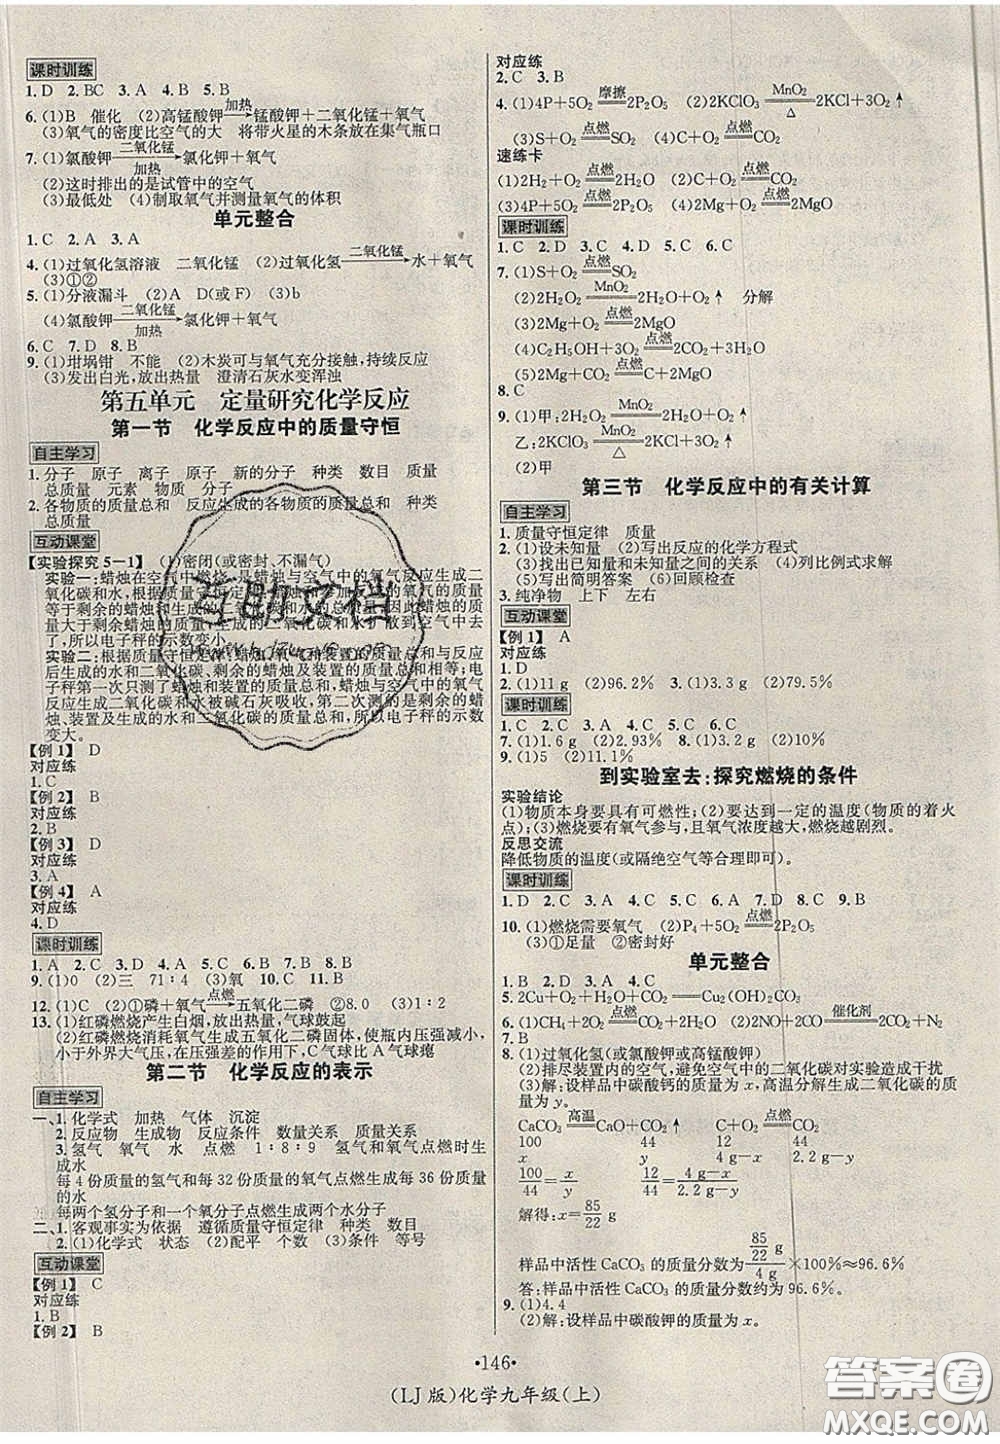 课时训练
1. D　2. BC　3. A　4. B　5. B
6. (1)B　催化　(2)高锰酸钾 加热→ 锰酸钾＋二氧化锰＋氧气
(3)氧气的密度比空气的大　将带火星的木条放在集气瓶口
7. (1)氯酸钾 二氧化锰/加热→ 氯化钾＋氧气
(2)这时排出的是试管中的空气
(3)最低处　(4)制取氧气并测量氧气的体积
单元整合
1. C　2. A　3. A
4. (1)过氧化氢溶液　二氧化锰　(2)过氧化氢 二氧化锰→ 水＋氧气
(3)①②
5. (1)分液漏斗　(2)A　D(或F)　(3)b
(4)氯酸钾 二氧化锰/加热→ 氯化钾＋氧气
6. C　7. D　8. B
9. (1)坩埚钳　不能　(2)木炭可与氧气充分接触,持续反应
(3)发出白光,放出热量　澄清石灰水变浑浊
第五单元　定量研究化学反应
第一节　化学反应中的质量守恒
自主学习
1. 分子　原子　离子　原子　新的分子　种类　数目　质量
总质量　元素　物质　分子
2. 各物质的质量总和　反应生成的各物质的质量总和　种类
总质量
互动课堂
【实验探究5－1】　(1)密闭(或密封、不漏气)
实验一:蜡烛在空气中燃烧,是蜡烛与空气中的氧气反应生成二
氧化碳和水,根据质量守恒定律,蜡烛和参加反应的氧气的质量
等于剩余的蜡烛和生成的二氧化碳和水的质量总和,因此蜡烛的
质量大于剩余的蜡烛的质量,生成的二氧化碳和水扩散到空气中
去了,所以电子秤的示数变小。
实验二:根据质量守恒定律,蜡烛、氧气和装置的质量总和与反应
后生成的水和二氧化碳、剩余的蜡烛及装置的质量总和相等;电
子秤第一次只测了蜡烛和装置的质量总和,蜡烛与空气中的氧气
反应生成二氧化碳和水被碱石灰吸收,第二次测的是剩余的蜡
烛、装置及生成的水和二氧化碳的质量总和,所以电子秤的示数
变大。
【例1】　D
对应练
1. C
【例2】　B
对应练
2. B
【例3】　D
对应练
3. A
【例4】　A
对应练
4. D
课时训练
1. A　2. C　3. D　4. A　5. D　6. B　7. B　8. C
9. (1)0　(2)三　71∶4　(3)氧　10. C　11. B
12. (1)C　(2)①磷＋氧气 点燃→ 五氧化二磷　②8.0　(3)1∶2
13. (1)红磷燃烧产生白烟,放出热量,气球鼓起
(2)红磷燃烧消耗氧气生成五氧化二磷固体,使瓶内压强减小,
小于外界大气压,在压强差的作用下,C气球比A气球瘪
第二节　化学反应的表示
自主学习
一、1. 化学式　加热　气体　沉淀
2. 反应物　生成物　反应条件　数量关系　质量关系
3. 氢气　氧气　水　点燃　1∶8∶9　氢气和氧气点燃时生
成水
每4份质量的氢气和每32份质量的氧气点燃生成每36份质量
的水
每两个氢分子和一个氧分子点燃生成两个水分子
二、1. 客观事实为依据　遵循质量守恒定律　种类　数目
2. (1)化学式　状态　(2)配平　个数　(3)条件　等号
互动课堂
【例1】　C
对应练
1. B
【例2】　B
对应练
2. C　3. B
4. (1)4P＋5O₂ 摩擦═ 2P₂O₅　(2)2KClO₃ MnO₂/△═ 2KCl＋3O₂↑
(3)S＋O₂ 点燃═ SO₂　(4)C＋O₂ 点燃═ CO₂
速练卡
(1)2H₂＋O₂ 点燃═ 2H₂O　(2)C＋O₂ 点燃═ CO₂
(3)4P＋5O₂ 点燃═ 2P₂O₅　(4)2Mg＋O₂ 点燃═ 2MgO
课时训练
1. C　2. D　3. C　4. D　5. C　6. C
7. (1)S＋O₂ 点燃═ SO₂
(2)2H₂O₂ MnO₂═ 2H₂O＋O₂↑　分解
(3)2Mg＋O₂ 点燃═ 2MgO
(4)C₂H₅OH＋3O₂ 点燃═ 2CO₂＋3H₂O
8. C
9. (1)甲:2H₂O₂ MnO₂═ 2H₂O＋O₂↑
乙:2KClO₃ MnO₂/△═ 2KCl＋3O₂↑
(2)甲
第三节　化学反应中的有关计算
自主学习
1. 质量守恒定律　质量
2. (1)设未知量　(2)写出反应的化学方程式
(3)找出已知量和未知量之间的关系　(4)列比例式求解
(5)写出简明答案　(6)回顾检查
3. 纯净物　上下　左右
互动课堂
【例1】　A
对应练
1. D
2. (1)11 g　(2)96.2%　3. (1)3.3 g　(2)79.5%
课时训练
1. D　2. C　3. A　4. C　5. C　6. C
7. (1)1.6 g　(2)2.93%　8. (1)3.2 g　(2)10%
9. (1)5　(2)11.1%
到实验室去:探究燃烧的条件
实验结论
(1)物质本身要具有可燃性;(2)要达到一定的温度(物质的着火
点);(3)燃烧要有氧气参与,且氧气浓度越大,燃烧越剧烈。
反思交流
降低物质的温度(或隔绝空气等合理即可)。
课时训练
1. D　2. C　3. A　4. C　5. C　6. A　7. D　8. C　9. B
10. (1)燃烧需要氧气　(2)P₄＋5O₂ 点燃═ 2P₂O₅
(3)①足量　②密封好
单元整合
1. B　2. D　3. A　4. C
5. 2Cu＋O₂＋H₂O＋CO₂═Cu₂(OH)₂CO₃
6. (1)CH₄＋2O₂ 点燃═ CO₂＋2H₂O　(2)2NO＋2CO 催化剂═ 2CO₂＋N₂
7. B
8. (1)过氧化氢(或氯酸钾或高锰酸钾)
(2)排尽装置内的空气,避免空气中的二氧化碳对实验造成干扰
(3)解:设样品中碳酸钙的质量为x,高温分解生成二氧化碳的质
量为y。
CaCO₃ 高温═ CaO＋CO₂↑　C＋O₂ 点燃═ CO₂
100　44　12　44
x　y　4 g－x　2.2 g－y
100/44＝x/y　12/44＝(4 g－x)/(2.2 g－y)
解得:x＝85/22 g
样品中活性CaCO₃的质量分数为 (85/22 g)/(4 g)×100%≈96.6%
答:样品中活性CaCO₃的质量分数约为96.6%。
9. (1)4.4
(2)解:设样品中碳酸钾的质量为x。
•146•
(LJ版)化学九年级(上)
互助文档
答案圈
MXQE.COM